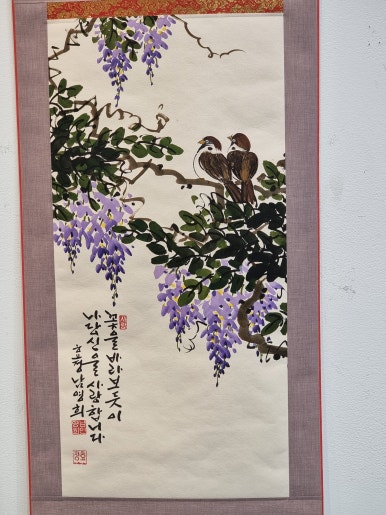 꽃을 바라보듯이
나 당신을 사랑합니다
남영희